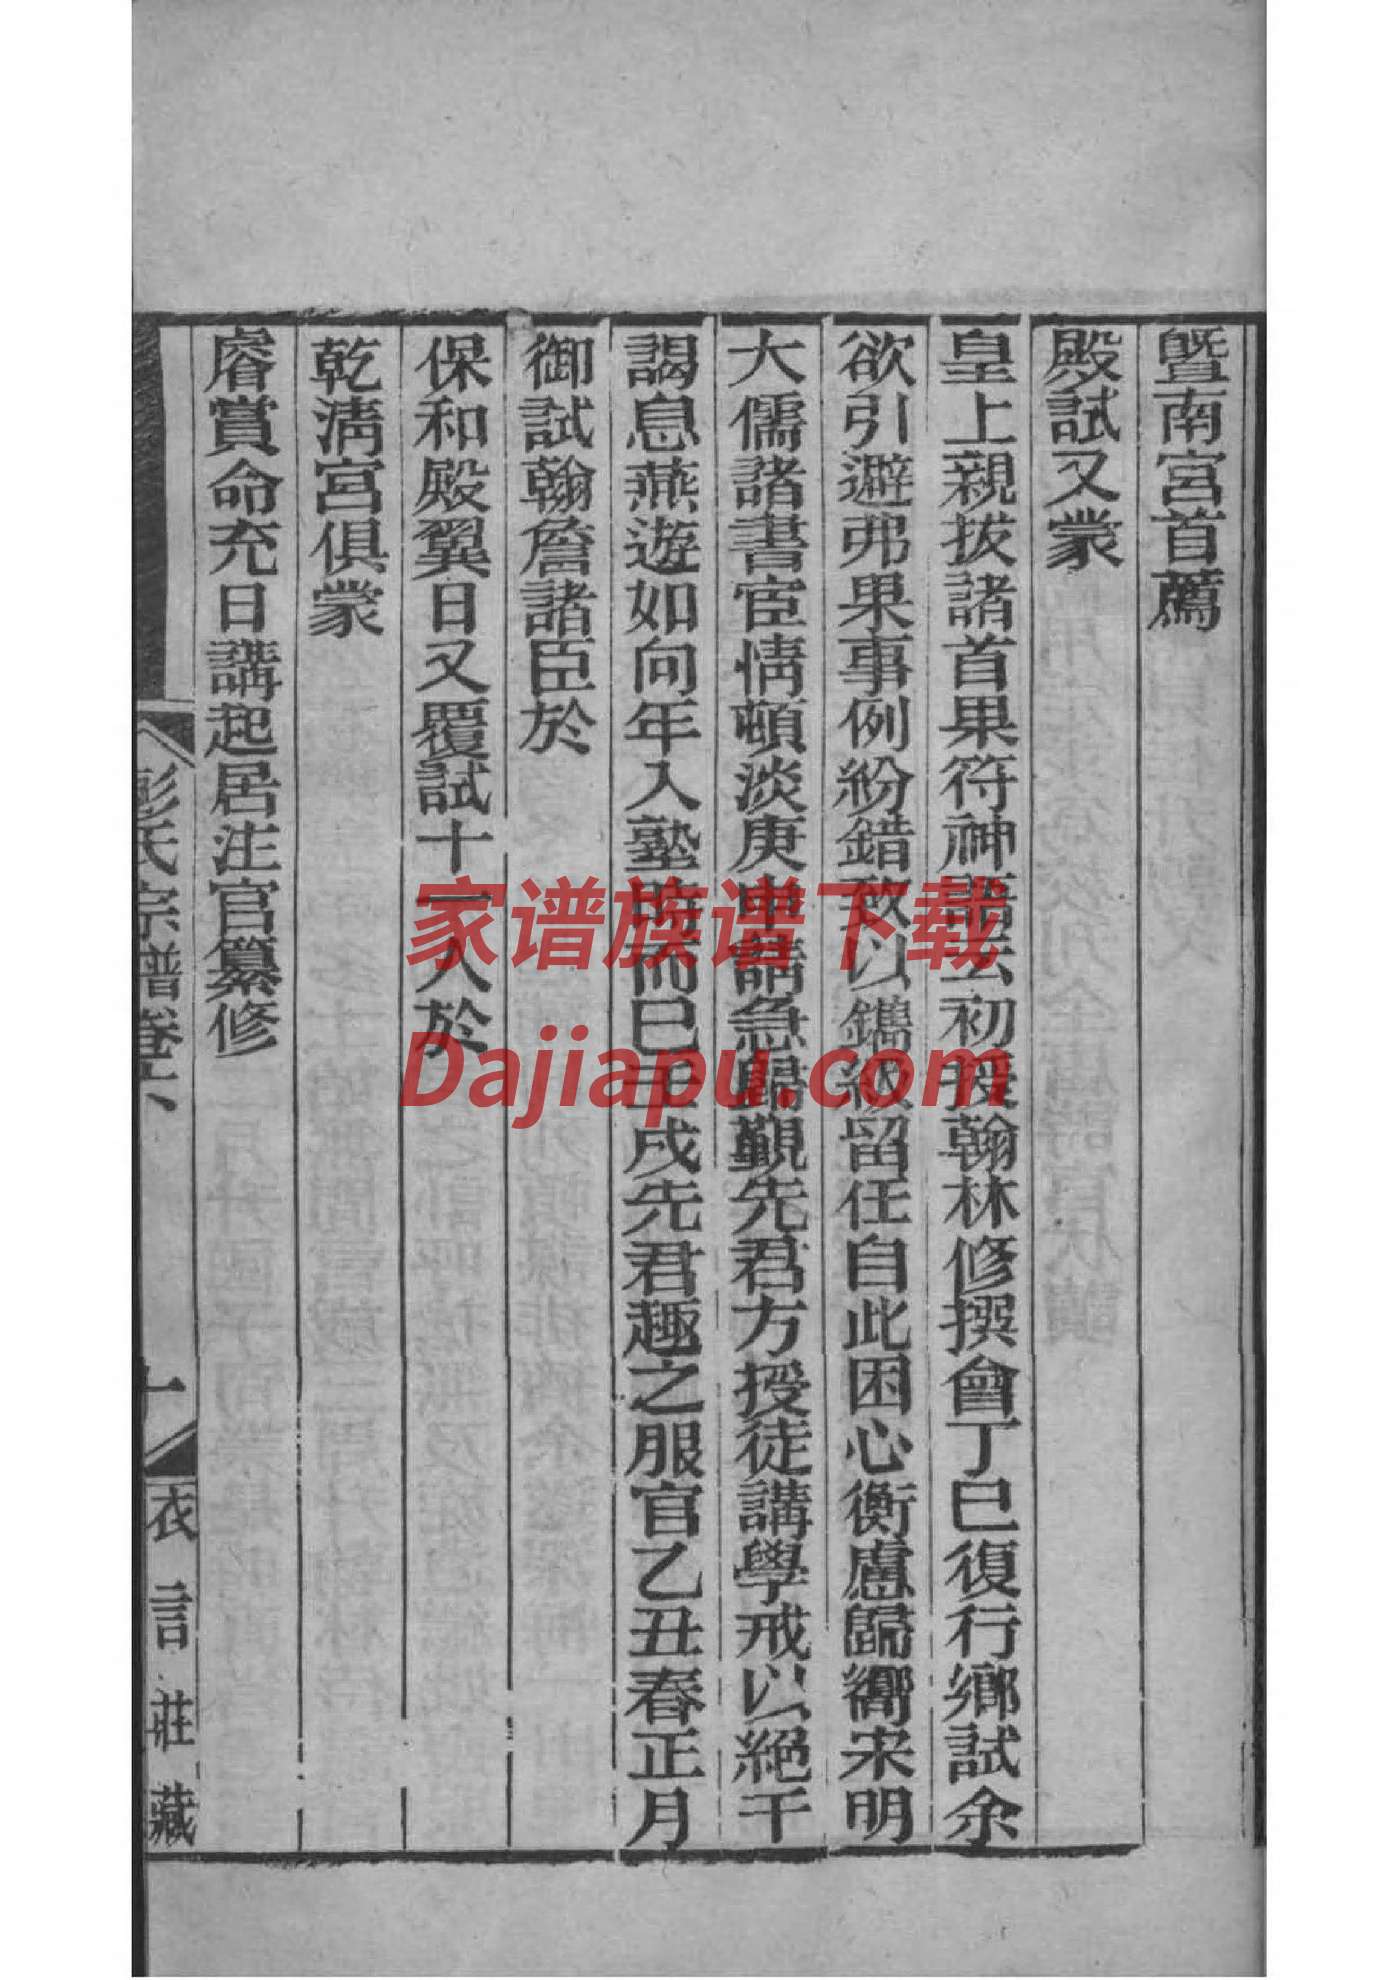 暨南宮首薦
殿試又蒙
皇上親拔諸首果符神語云初授翰林修撰會丁巳復行鄉試余
欲引避弗果事例紛錯致以鐫級留任自此困心衡慮歸嚮宋明
大儒諸書宦情頓淡庚申請急歸覲先君方授徒講學戒以絕干
謁息燕遊如向年入塾時而已壬戌先君趣之服官乙丑春正月
御試翰詹諸臣於
保和殿翼日又覆試十一人於
乾淸宮俱蒙
睿賞命充日講起居注官纂修
彭氏宗譜 卷六 十 衣言莊藏
家谱族谱下载
Dajiapu.com